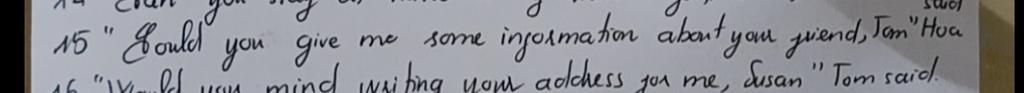 you
said
15 "Could you give me some information about your friend, Tom" Hoa
16 "Would you mind writing your address for me, Susan" Tom said.